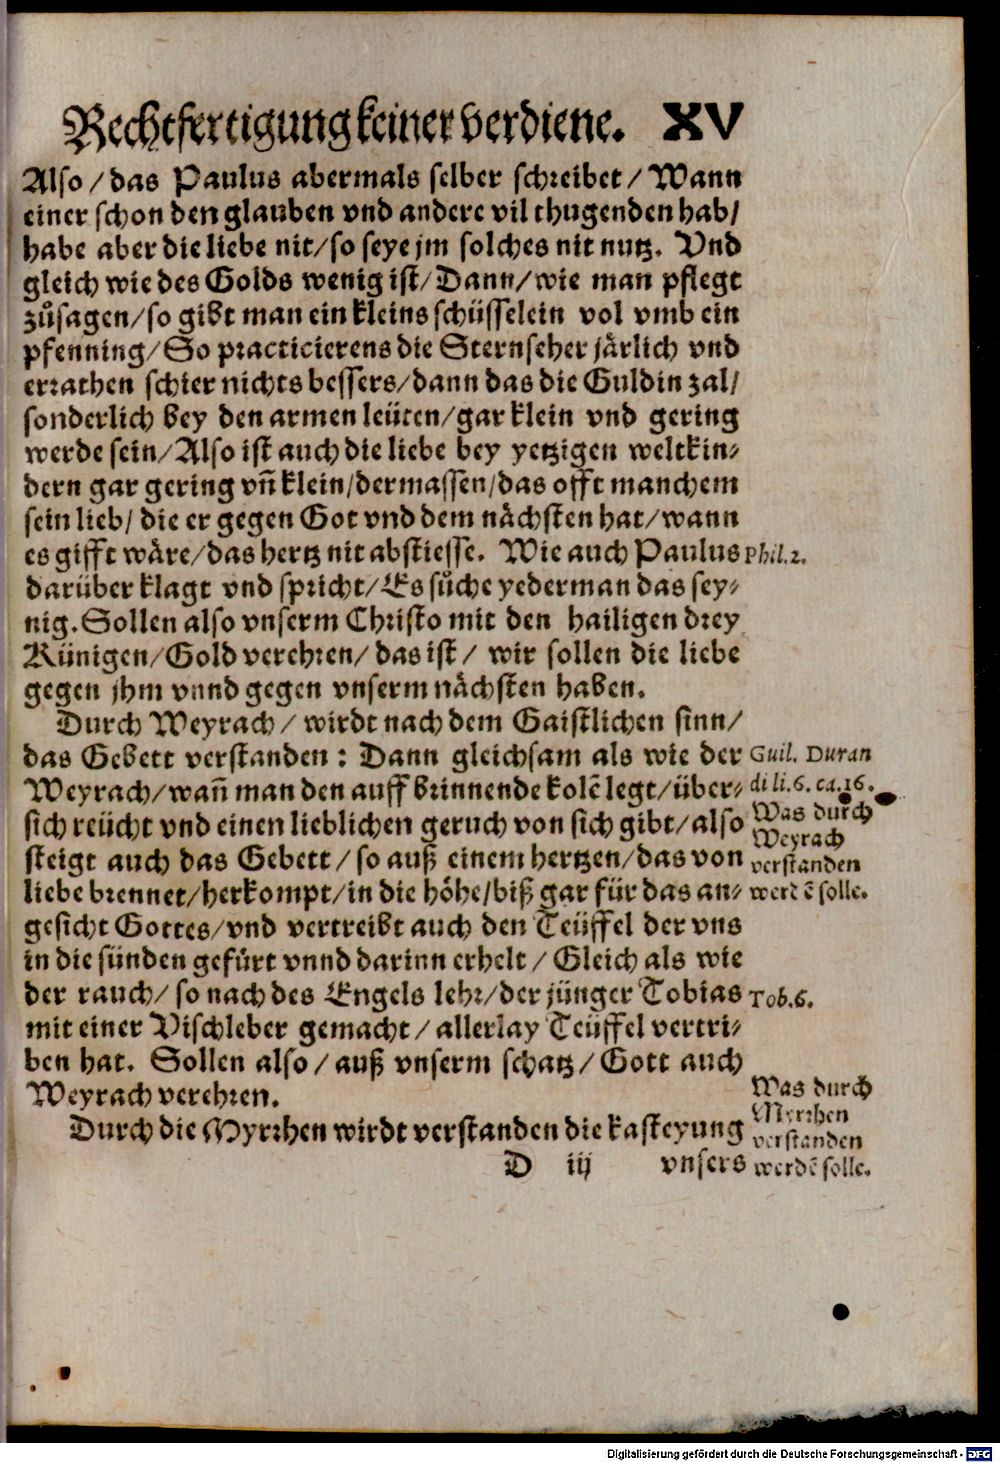 Rechtfertigung keiner verdiene. XV
Also / das Paulus abermals selber schreibet / Wann
einer schon den glauben vnd andere vil thugenden hab /
habe aber die liebe nit / so seye jm solches nit nutz. Vnd
gleich wie des Golds wenig ist / Dann / wie man pflegt
zůsagen / so gibt man ein kleins schüsselein vol vmb ein
pfenning / So practicierens die Sternseher järlich vnd
errathen schier nichts bessers / dann das die Guldin zal /
sonderlich bey den armen leüten / gar klein vnd gering
werde sein / Also ist auch die liebe bey yetzigen weltkin-
dern gar gering vñ klein / dermassen / das offt manchem
sein lieb / die er gegen Got vnd dem nächsten hat / wann
es gifft wäre / das hertz nit abstiesse. Wie auch Paulus
Phil. 2.
darüber klagt vnd spricht / Es sůche yederman das sey-
nig. Sollen also vnserm Christo mit den hailigen drey
Künigen / Gold verehren / das ist / wir sollen die liebe
gegen jhm vnnd gegen vnserm nächsten haben.
Durch Weyrach / wirdt nach dem Gaistlichen sinn /
das Gebett verstanden : Dann gleichsam als wie der
Guil. Duran
Weyrach / wañ man den auff brinnende kolẽ legt / über-
di li. 6. ca. 16.
sich reücht vnd einen lieblichen geruch von sich gibt / also
Was durch
Weyrach
steigt auch das Gebett / so auß einem hertzen / das von
verstanden
liebe brennet / herkompt / in die höhe / biß gar für das an-
werdẽ solle.
gesicht Gottes / vnd vertreibt auch den Teüffel der vns
in die sünden gefürt vnnd darinn erhelt / Gleich als wie
der rauch / so nach des Engels lehr / der jünger Tobias
Tob. 6.
mit einer Vischleber gemacht / allerlay Teüffel vertri-
ben hat. Sollen also / auß vnserm schatz / Gott auch
Weyrach verehren.
Was durch
Myrrhen
Durch die Myrrhen wirdt verstanden die kasteyung
verstanden
D iij vnsers
werdẽ solle.
Digitalisierung gefördert durch die Deutsche Forschungsgemeinschaft - DFG